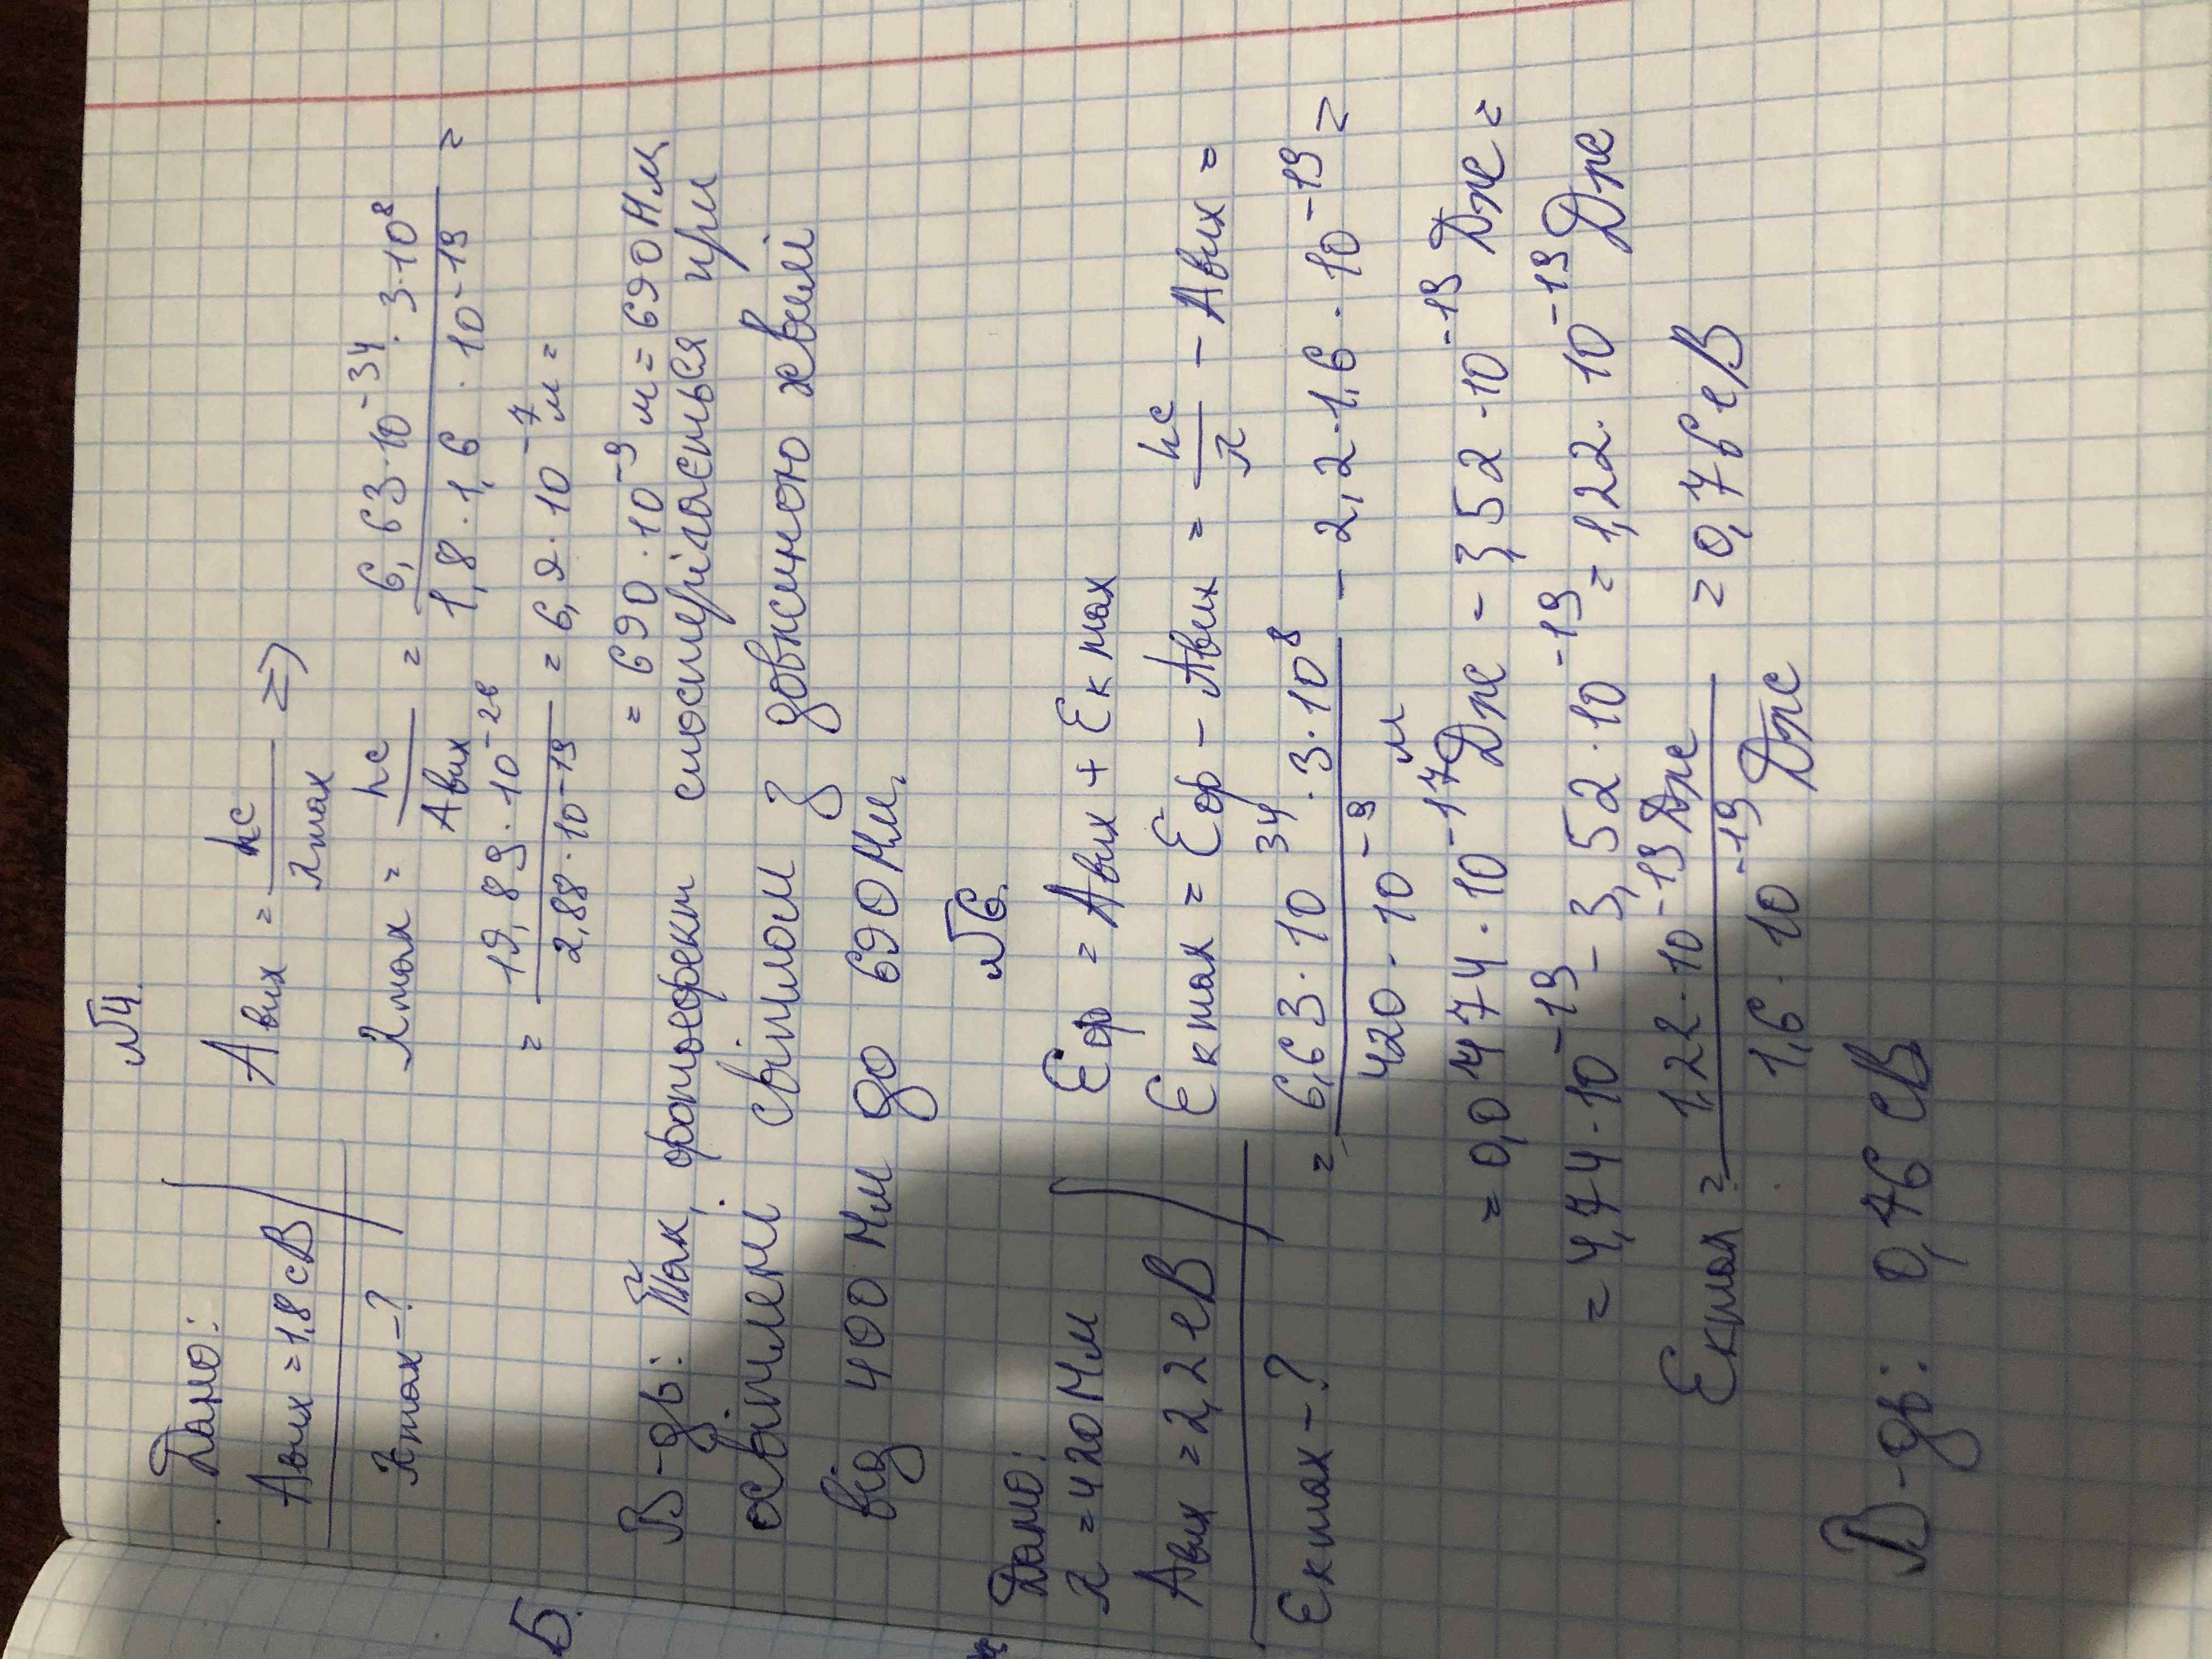 №4.
Дано:
Aвих = 1,8 еВ
λmax - ?
Aвих = hc / λmax =>
λmax = hc / Aвих = 6,63·10^-34 · 3·10^8 / 1,8 · 1,6 · 10^-19 =
= 19,89·10^-26 / 2,88·10^-19 = 6,9·10^-7 м =
= 690·10^-9 м = 690 нм
В-дь: Так, фотоефект спостерігається при
освітлені світлом з довжиною хвилі
від 400 нм до 690 нм.
Б.
№6.
Дано:
λ = 420 нм
Aвих = 2,2 еВ
Eк max - ?
Eф = Aвих + Eк max
Eк max = Eф - Aвих = hc / λ - Aвих =
= 6,63·10^34 · 3·10^8 / 420·10^-9 м - 2,2·1,6·10^-19 =
= 0,0474·10^-17 Дж - 3,52·10^-19 Дж =
= 4,74·10^-19 - 3,52·10^-19 = 1,22·10^-19 Дж
Eк max = 1,22·10^-19 Дж / 1,6·10^-19 Дж = 0,76 еВ
В-дь: 0,76 еВ